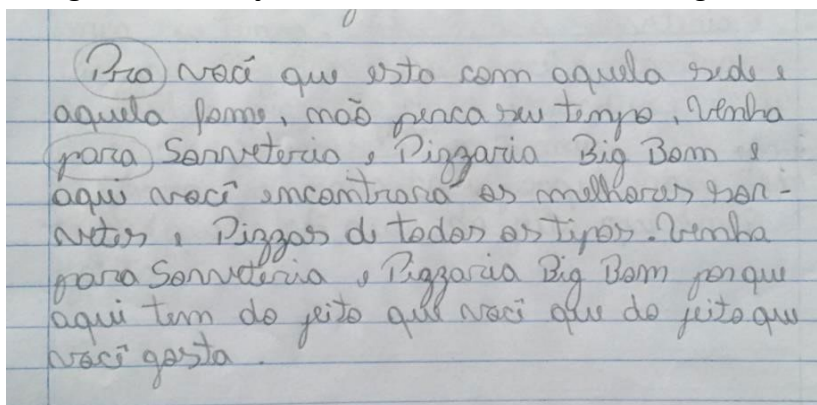 Pra você que esta com aquela sede e
aquela fome, não perca seu tempo, Venha
para Sorveteria e Pizzaria Big Bom e
aqui você encontrará as melhores sor-
vetes e Pizzas de todos os tipos. Venha
para Sorveteria e Pizzaria Big Bom porque
aqui tem do jeito que você que do jeito que
você gosta.